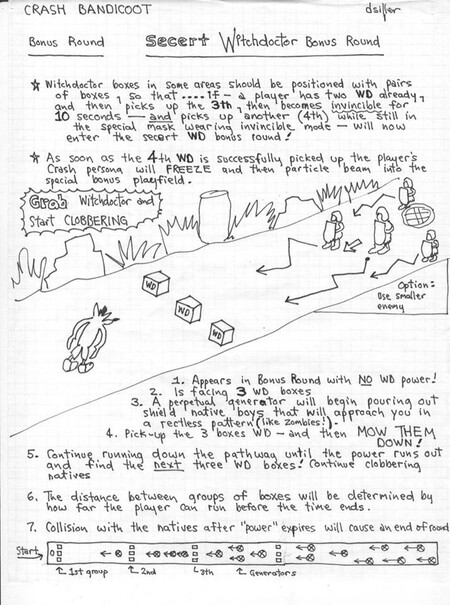 CRASH BANDICOOT
dsiller
Bonus Round
Secert Witchdoctor Bonus Round
Witchdoctor boxes in some areas should be positioned with pairs
of boxes, so that .... If - a player has two WD already,
and then picks up the 3th, then becomes invincible for
10 seconds - and picks up another (4th) while still in
the special mask wearing invincible mode - will now
enter the secert WD bonus round!
As soon as the 4th WD is successfully picked up the player's
Crash persona will FREEZE and then particle beam into the
special bonus playfield.
Grab Witchdoctor and
Start CLOBBERING
WD
WD
WD
Option:
Use smaller
enemy
1. Appears in Bonus Round with NO WD power!
2. Is facing 3 WD boxes
3. A perpetual generator will begin pouring out
shield native boys that will approach you in
a rectless pattern (like Zombies!).
4. Pick-up the 3 boxes WD - and then MOW THEM
DOWN!
5. Continue running down the pathway until the power runs out
and find the next three WD boxes! Continue clobbering
natives
6. The distance between groups of boxes will be determined by
how far the player can run before the time ends.
7. Collision with the natives after "power" expires will cause an end of round
Start
1st group
2nd
3th
Generators